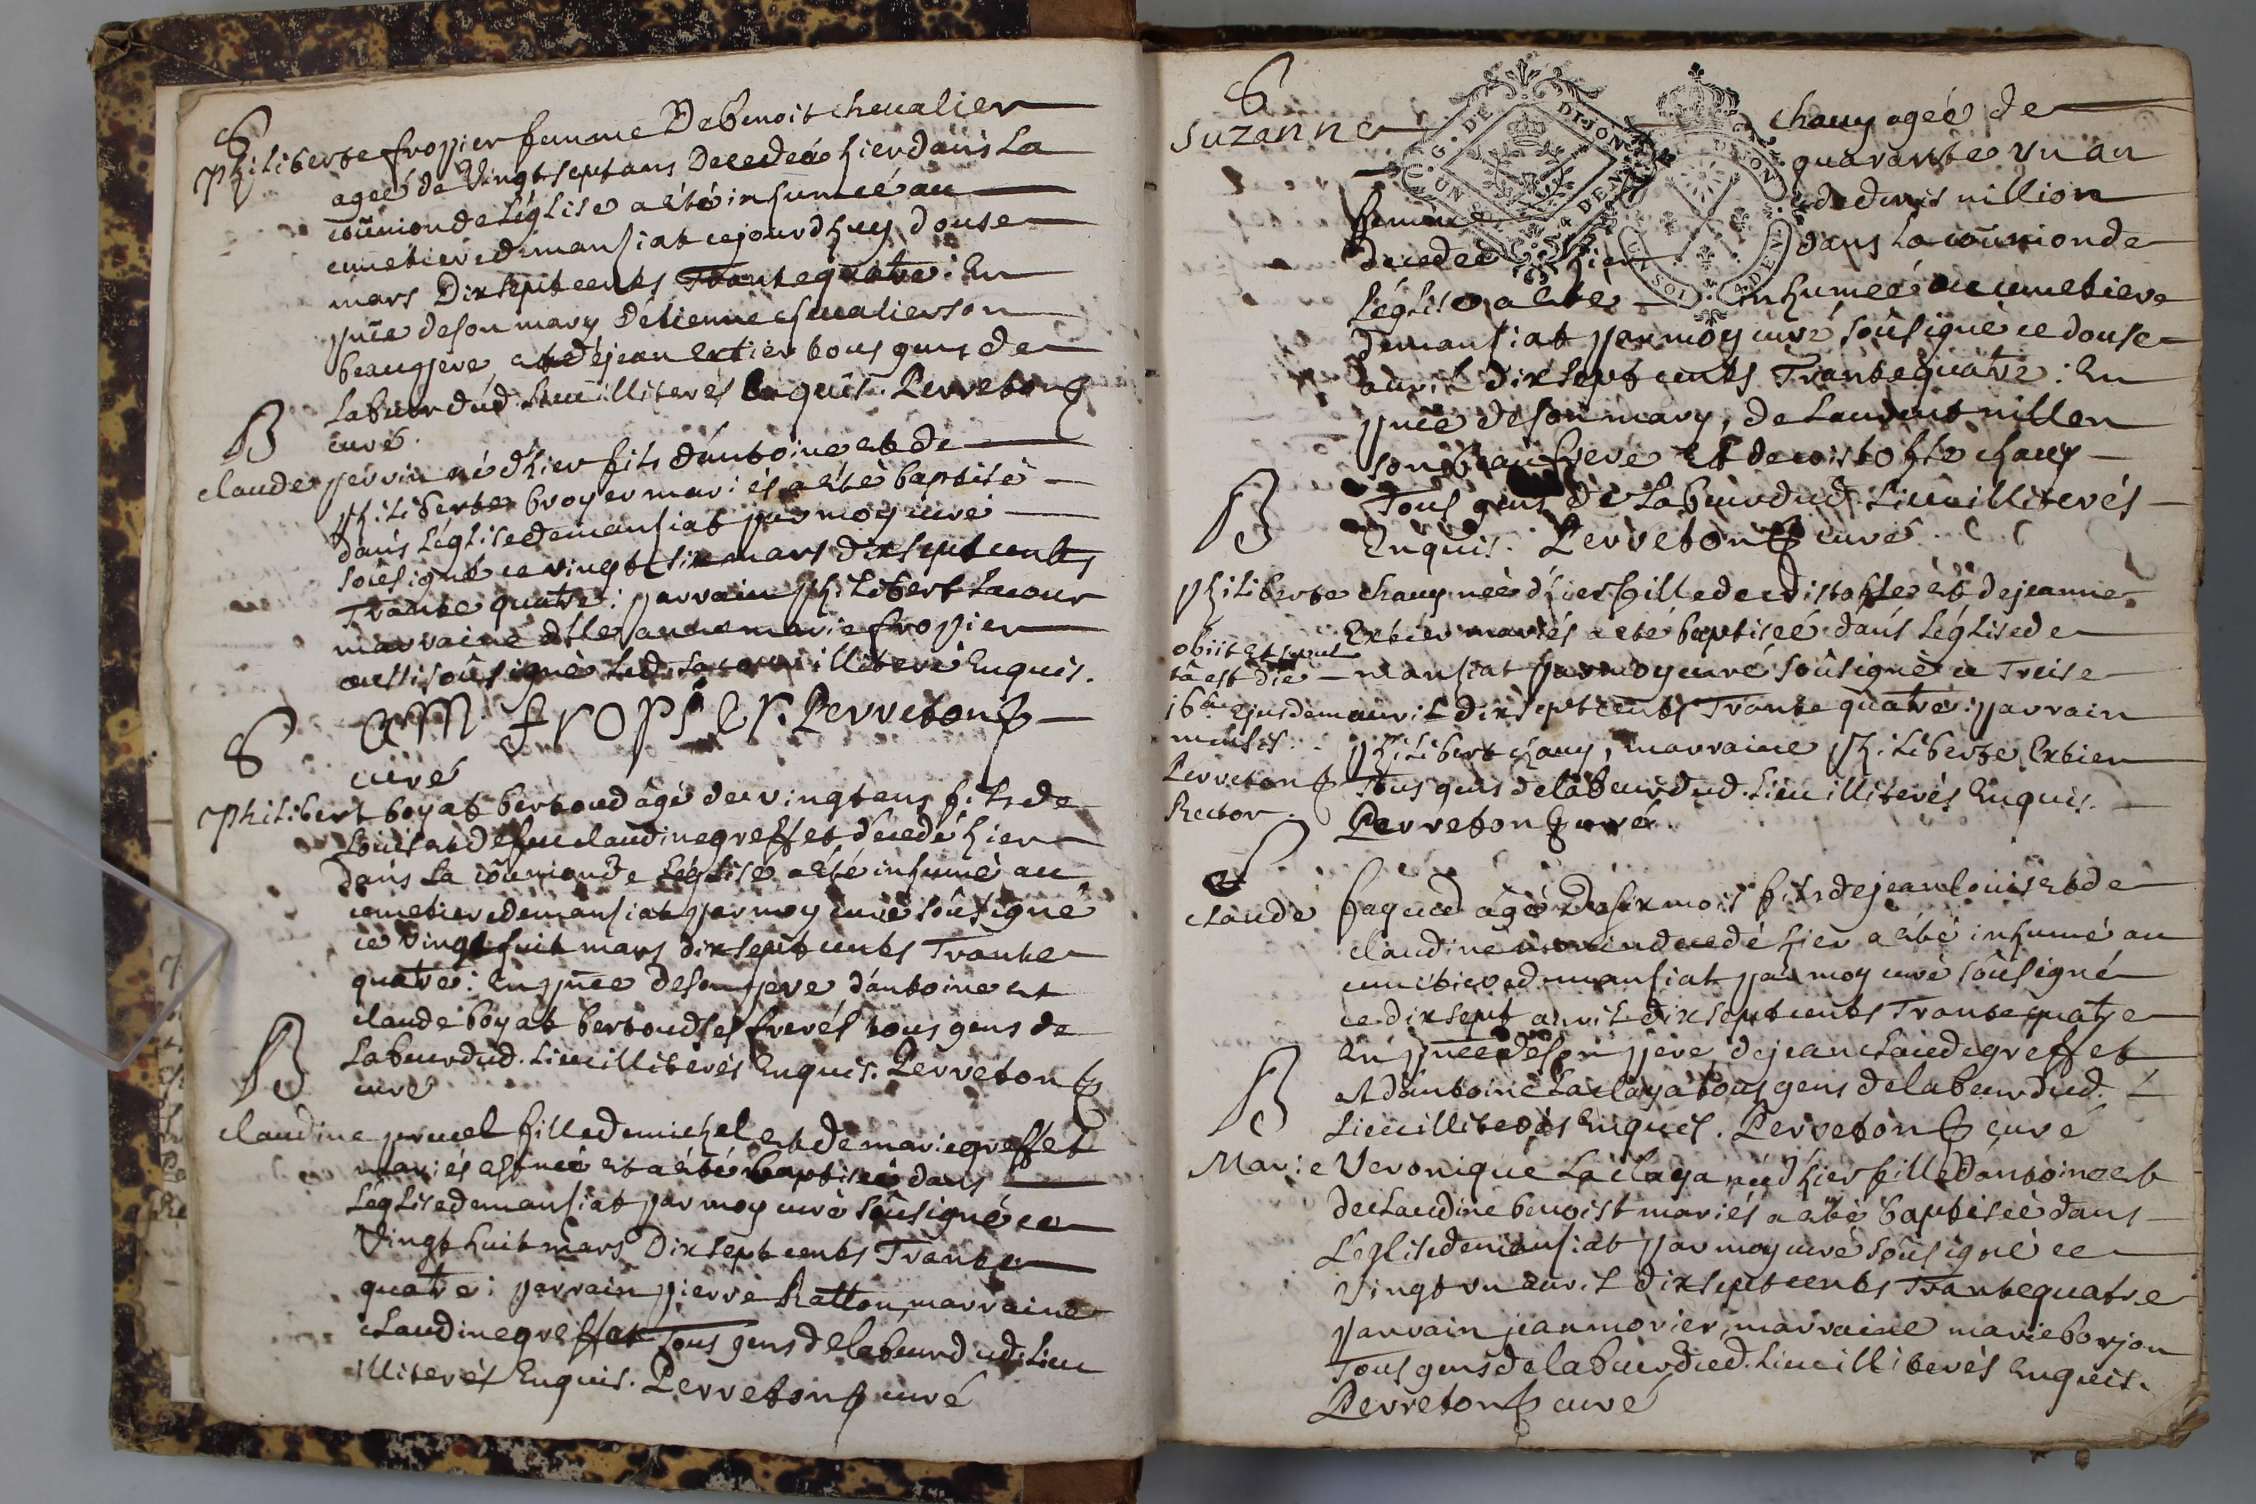 S
philiberte froppier femme De benoit chevalier
ageé de Vingt sept ans Decedeé hier dans La
coûnion de L'église a été inhumeé au
cimetiere de mansiat ce jourdhuy douse
mars Dix sept cents Trante quatre : En
pnce de son mary détienne chevalier son
beaupere, et de jean Extier tous gens de
Labeur dud. Lieu illiterés Enquis. Perreton
curé.
B
claude perrin né d'hier fils d'antoine et de
philiberte broyer mariés a été baptisé
dans L'église de mansiat par moy curé
soûsigné ce vingt six mars dix sept cents
Trante quatre : parrain philibert Lacour
marraine dlle anne marie froppier
aussi soûsigné Led. Lacour illiteré Enquis.
AM fropier. Perreton
curé
S
philibert boyat bertoud âgé de vingt ans fils de
Loüis et de feu claudine greffet décedé hier
dans La coûnion de L'église a été inhumé au
cimetiere de mansiat par moy curé soûsigné
ce Vingt huit mars dix sept cents Trante
quatre : En pnce de son pere d'antoine et
claude boyat bertoud ses freres tous gens de
Labeur dud. Lieu illiterés Enquis. Perreton
curé
B
claudine prucel fille de michel et de marie greffet
mariés est neé et a été baptiseé dans
L'église de mansiat par moy curé soûsigné ce
Vingt huit mars Dix sept cents Trante
quatre : parrain pierre Ratton, marraine
claudine greffet Tous gens de labeur dud. Lieu
illiterés Enquis. Perreton curé
S
Suzanne chauy ageé de
quarante Un an
G. DE DIJON
UN S. 4 DEN.
DIJON
UN SOL 4 DEN
femme de denis nillion
decedeé hier dans La coûnion de
L'église a été inhumeé au cimetiere
de mansiat par moy curé soûsigné ce douse
auril dix sept cents Trante quatre : En
pnce de son mary, de Laurent nillon
son beaufrere Et de cristophle chauy
Tous gens de Labeur dud. Lieu illiterés
Enquis. Perreton curé.
B
philiberte chauy neé d'hier fille de cristophle et de jeanne
Extier mariés a eté baptiseé dans L'église de
mansiat par moy curé soûsigné ce Treise
auril dix sept cents Trante quatre : parrain
philibert chauy, marraine philiberte Extier
Tous gens de labeur dud. Lieu illiterés Enquis.
Perreton curé.
obiit et sepul
ta est die
16a ejusdem
mensis.
Perreton
Rector.
S
claude fagued âgé De six mois fils de jean louis et de
claudine morin decedé hier a été inhumé au
cimetiere de mansiat par moy curé soûsigné
ce dix sept auril dix sept cents Trante quatre
En pnce de son pere, de jean claude greffet
et d'antoine Laclaya tous gens de labeur dud.
Lieu illiterés Enquis. Perreton curé
B
Marie Veronique Laclaya neé d'hier fille d'antoine et
de claudine benoist mariés a été baptiseé dans
L'église de mansiat par moy curé soûsigné ce
Vingt un auril dix sept cents Trante quatre
parrain jean morier, marraine marie borjon
Tous gens de labeur dud. Lieu illiterés Enquis.
Perreton curé